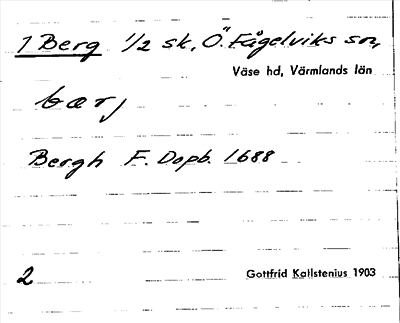 1 Berg 1/2 sk, Ö. Fågelviks sn,
Väse hd, Värmlands län
bærj
Bergh F. Dopb. 1688
2 Gottfrid Kallstenius 1903